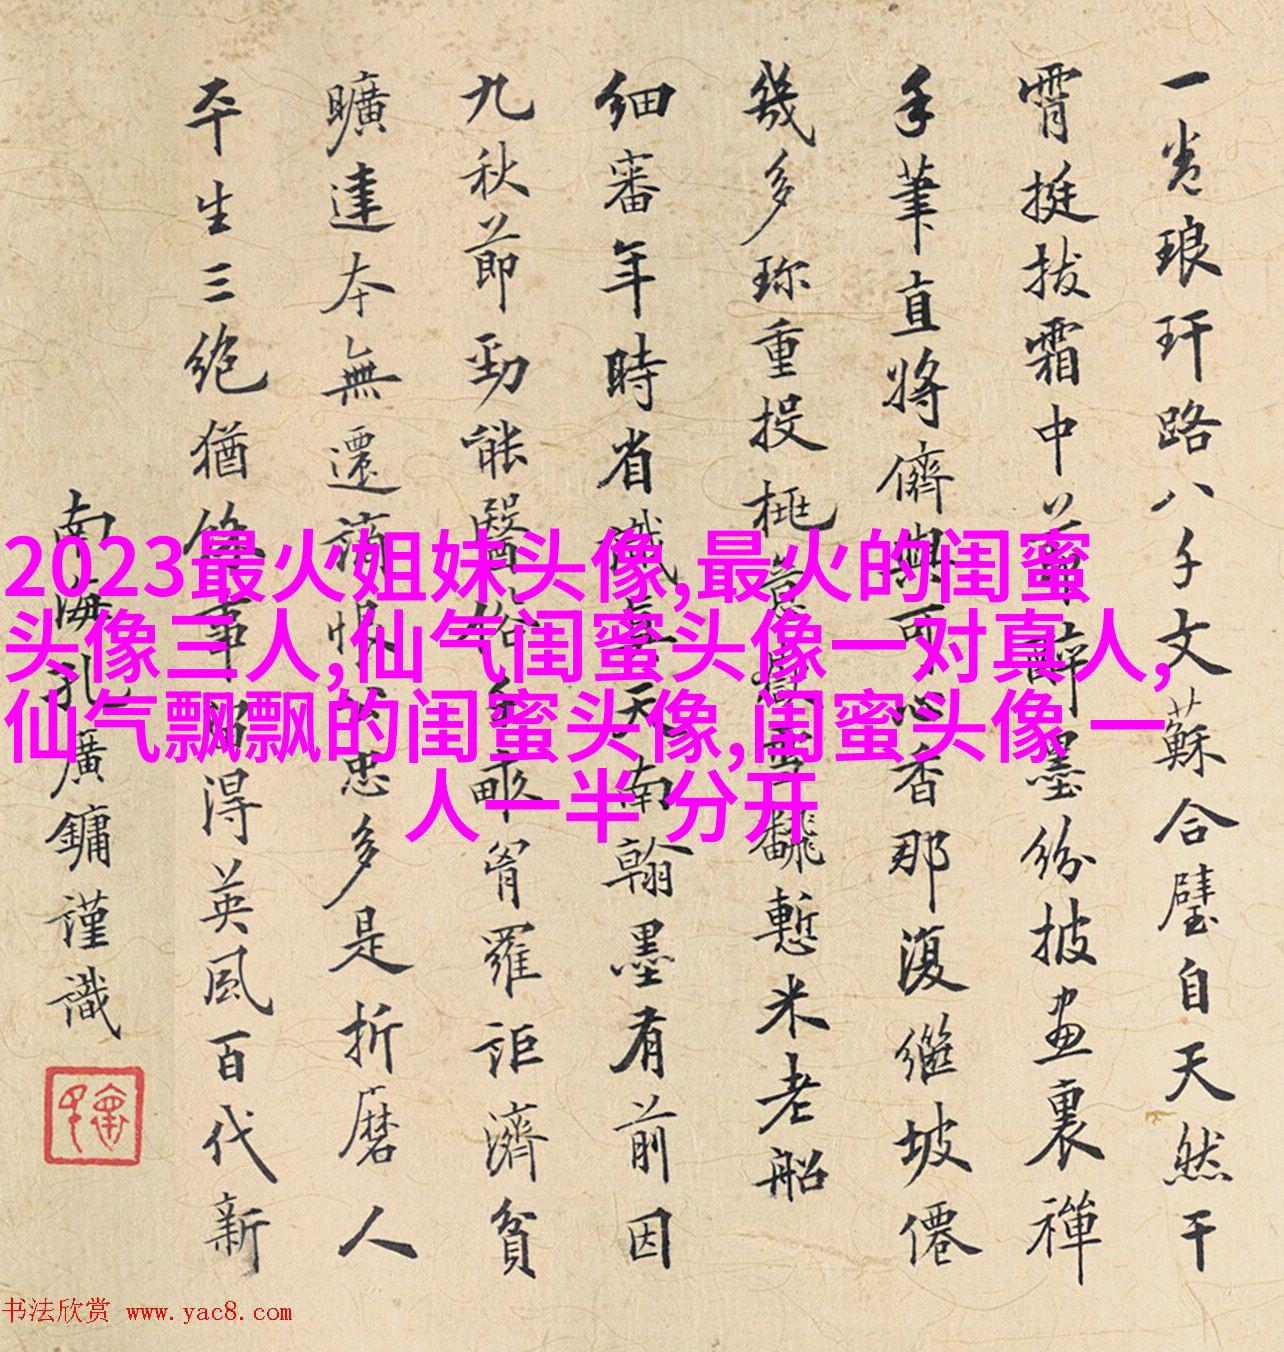 一卷琅玕路八千文蘇合璧自天然干
霄挺拔霜中醉墨紛披畫裏禪
手筆直將儕與可心香那復繼坡僊
幾多珍重投桃意書翻慙米老船
細審年時省識天南翰墨有前因
九秋節勁能醫俗畝胷羅詎濟貧
曠達本無遷謫恨公忠多是折磨人
平生三絕猶餘事留得英風百代新
南海孔廣鏞謹識
2023最火姐妹头像,最火的闺蜜
头像三人,仙气闺蜜头像一对真人,
仙气飘飘的闺蜜头像,闺蜜头像 一
人一半 分开
书法欣赏 www.yac8.com